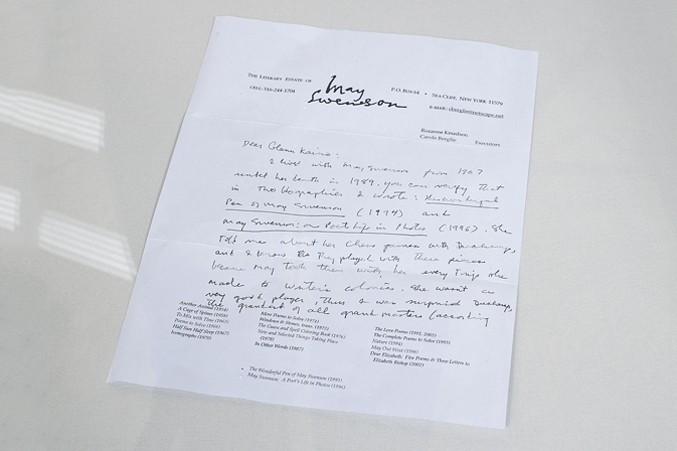 The Literary Estate of
May
Swenson
P.O. Box • Sea Cliff, New York 11579
(Tel) 516-244-3704
e-mail:
Rozanne Knudson
Carole Berglie
Executors
Dear Glenn Kaino:
I lived with May Swenson from 1967
until her death in 1989. You can verify that
in two biographies I wrote: The Wonderful
Pen of May Swenson (1994) and
May Swenson: A Poet's Life in Photos (1996). She
told me about her chess games with Duchamp,
and I know that they played with these pieces
because May took them with her every trip she
made to writer's colonies. She wasn't a
very good player, thus I was surprised Duchamp,
the greatest of all grand masters (according
Another Animal (1954)
A Cage of Spines (1958)
To Mix with Time (1963)
Poems to Solve (1966)
Half Sun Half Sleep (1967)
Iconographs (1970)
More Poems to Solve (1971)
Windows & Stones, trans. (1972)
The Guess and Spell Coloring Book (1976)
New and Selected Things Taking Place
(1978)
In Other Words (1987)
The Love Poems (1991, 2003)
The Complete Poems to Solve (1993)
Nature (1994)
May Out West (1996)
Dear Elizabeth: Five Poems & Three Letters to
Elizabeth Bishop (2000)
• The Wonderful Pen of May Swenson (1993)
May Swenson: A Poet's Life in Photos (1996)